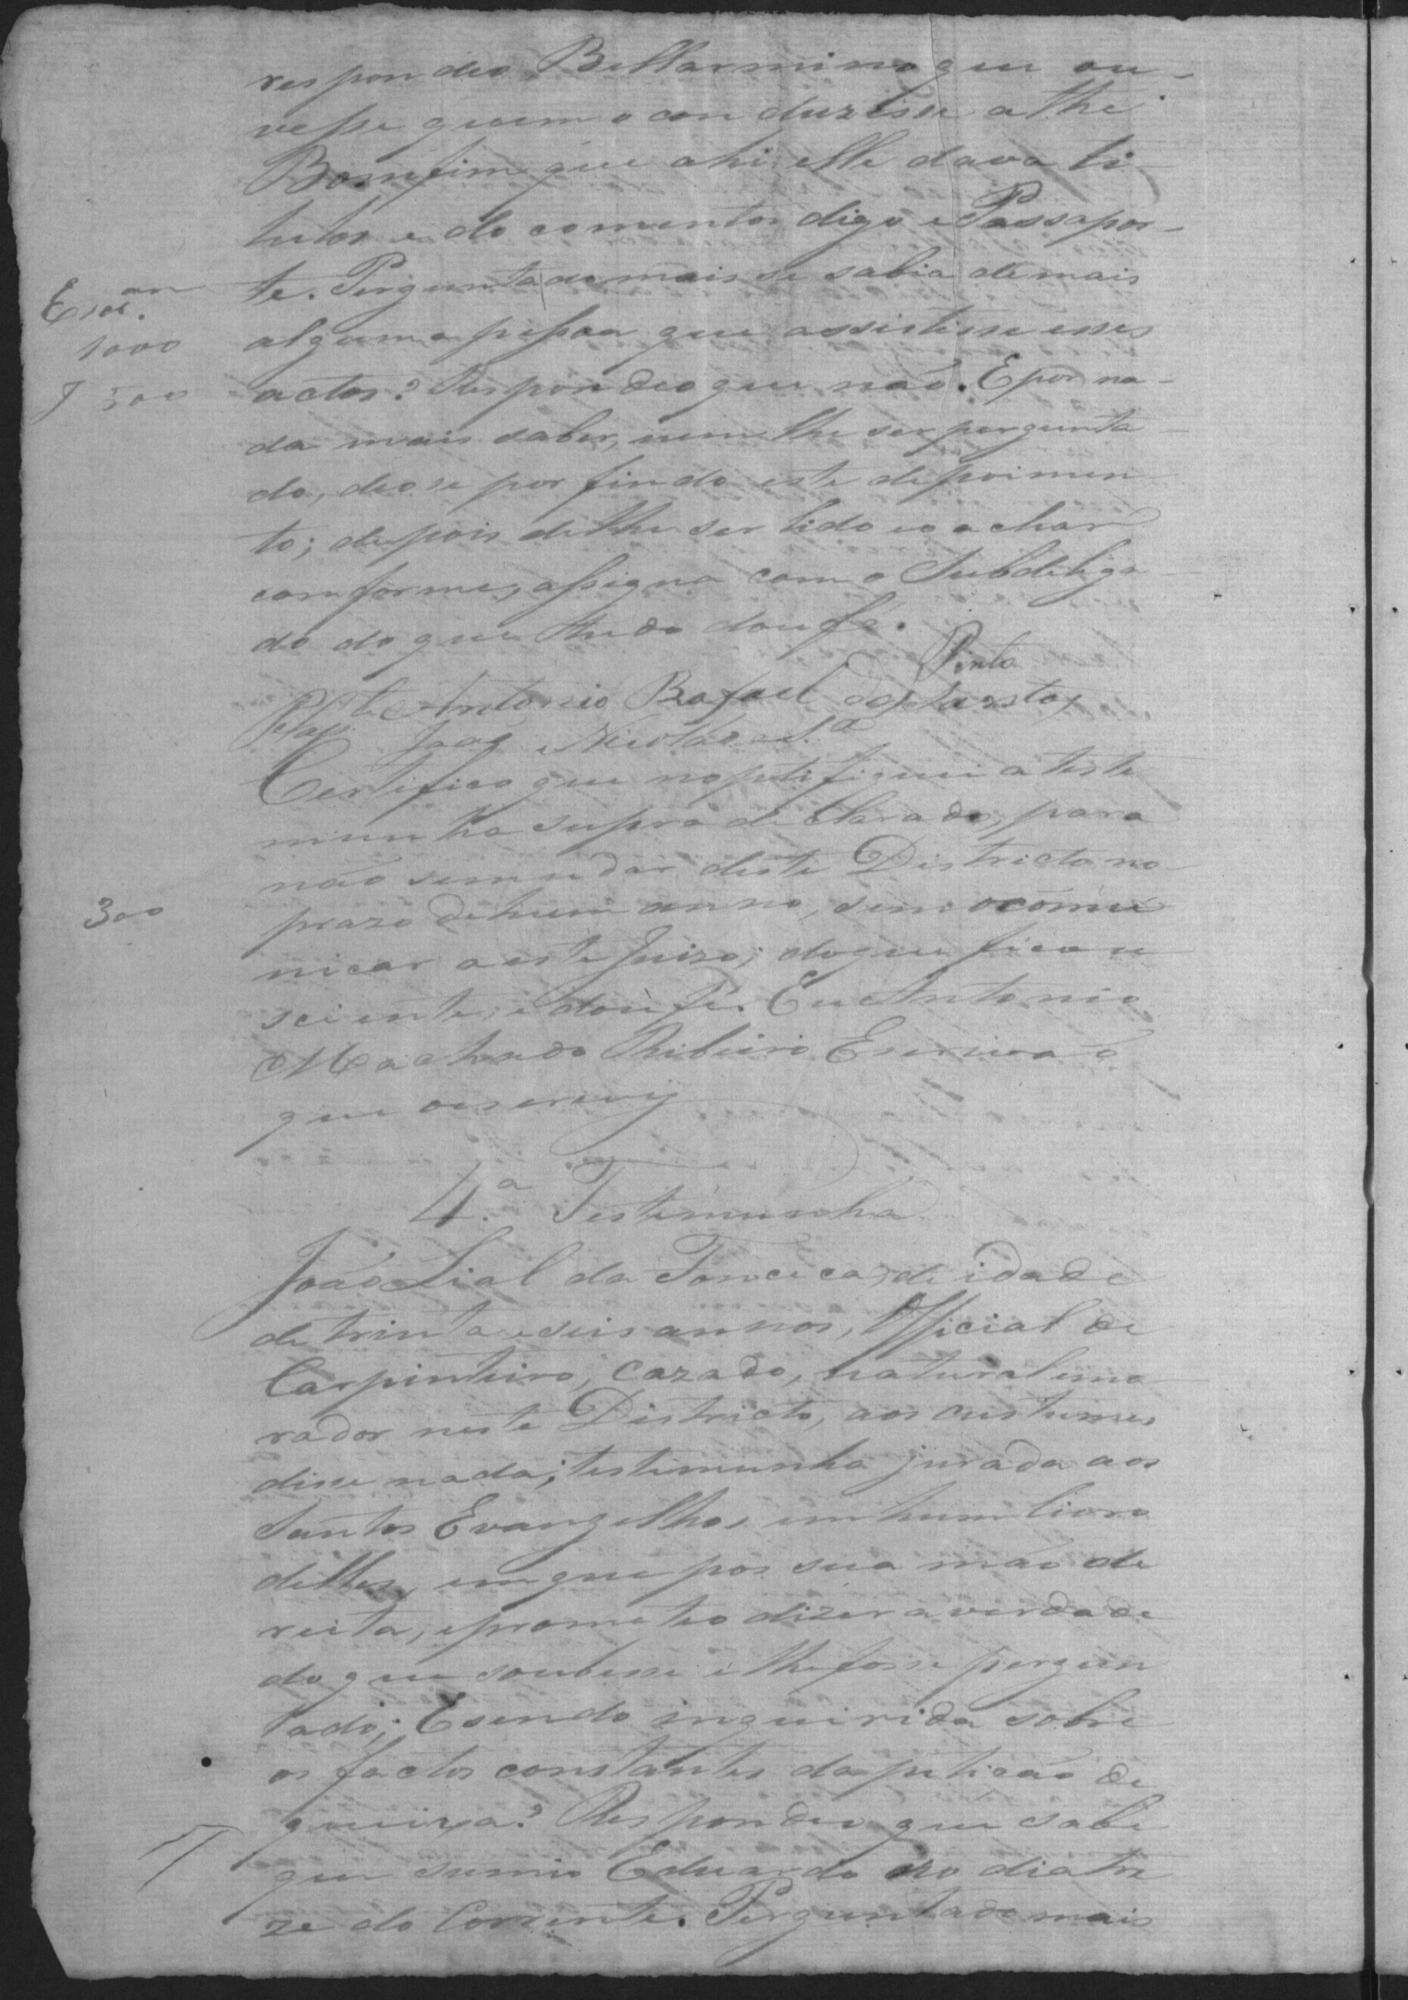 respondeo Bellarmino que ou-
vesse quem o conduzisse athe
Bomfim que ahi elle dava ti
tulos e documentos digo e Passapor-
te. Perguntado mais se sabia de mais
Escr.am
1000
alguma pessoa que assistisse esses
J 500
actos? Respondeo que não. E por na-
da mais saber, nem lhe ser pergunta-
do, deo se por findo este depoimen
to; depois de lhe ser lido e o achar
conforme, assigna com o Subdeliga
do do que tudo dou fé.
Pinto
Antonio Rafael dos Santos
Certifico que notifiquei a teste
munha supra declarada, para
não se mudar deste Districto no
300
prazo de hum anno, sem o comu
nicar a este Juizo; do que ficou
sciente, e dou fé. Eu Antonio
Machado Ribeiro Escrivão
que o escrevy
4.a Testemunha
João Lial da Fonceca, de idade
de trinta e seis annos, Official de
Carpinteiro, cazado, natural e mo
rador neste Districto, aos custumes
disse nada; testimunha jurada aos
Santos Evangelhos em hum livro
delles, em que pos sua mão di
reita, e prometeo dizer a verdade
do que soubesse e lhe fosse pergun
tado; E sendo inquirida sobre
os factos constantes da petição de
queixa? Respondeo que sabe
que sumio Eduardo no dia tre
ze do Corrente. Perguntado mais